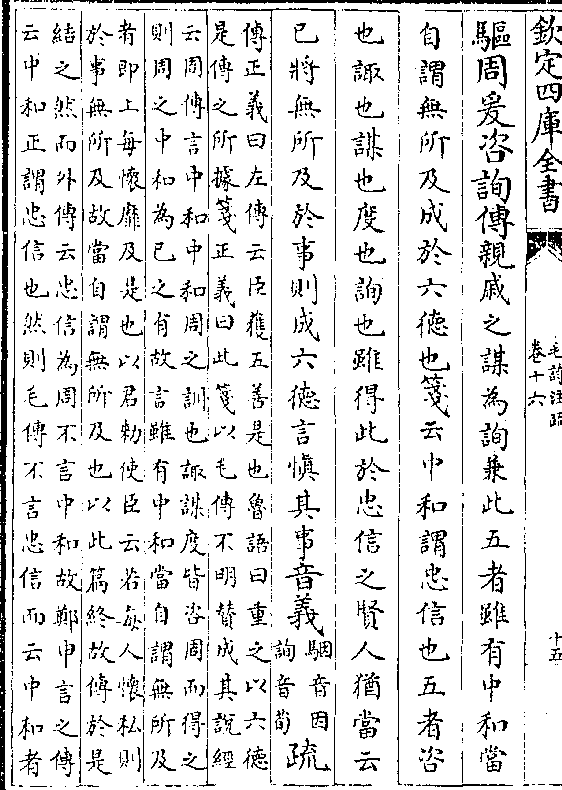 欽定四庫全書
毛詩注疏
卷十六
十五
驅周爰咨詢傳親戚之謀為詢兼此五者雖有中和當
自謂無所及成於六德也箋云中和謂忠信也五者咨
也諏也謀也度也詢也雖得此於忠信之賢人猶當云
已將無所及於事則成六德言慎其事音義
駰音因
詢音荀
疏
傳正義曰左傳云臣獲五善是也魯語曰重之以六德
是傳之所據箋正義曰此箋以毛傳不明贊成其說經
云周傳言中和中和周之訓也諏謀度皆咨周而得之
則周之中和為已之有故言雖有中和當自謂無所及
者即上每懷靡及是也以君勅使臣云若每人懷私則
於事無所及故當自謂無所及也以此篇終故傳於是
結之然而外傳云忠信為周不言中和故鄭申言之傳
云中和正謂忠信也然則毛傳不言忠信而云中和者